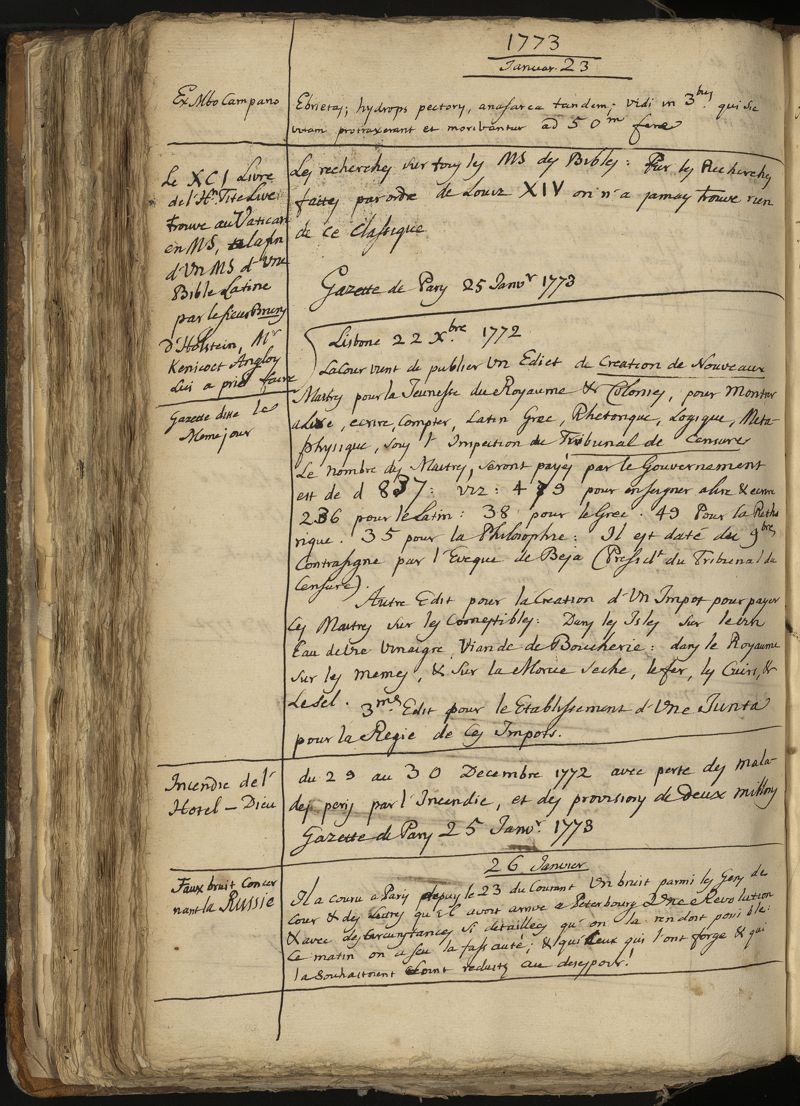 1773
Januar. 23
Ex Mbo Campano
Ebrietas; hydrops pectoris, anasarca tandem; vidi in 3bus qui sic
vitam protraxerant et moribuntur ad 50m fere
Le XCI Livre
de l'Hre Tite Live
trouve au Vatican
en MS, a la fin
d'Un MS d'Une
Bible Latine
par le sieur Bruns
d'Holstein, Mr
Kenicoct Anglois
Lui a prié faire
Les recherches sur tous les MS des Bibles: Par les Recherches
faites par ordre de Louis XIV on n'a jamais trouve rien
de ce Classique
Gazette de Paris 25 Janvr 1773
Gazette dite le
Meme jour
Lisbone 22 Xbre 1772
La Cour vient de publier Un Edict de Creation de Nouveaux
Maitres pour la Jeunesse du Royaume & Colonies, pour Montrer
a Lire, ecrire, Compter, Latin Grec, Rhetorique, Logique, Meta-
physique, sous l'Inspection du Tribunal de Censure
Le nombre des Maitres, seront payés par le Gouvernement
est de d 837: viz: 479 pour enseigner a lire & ecrire
236 pour le Latin: 38 pour le Grec. 49 Pour la Retho
rique. 35 pour la Philosophie: Il est daté du 9bre
Contrasigne par l'Eveque de Beja (Presidt du Tribunal de
Censure).
Autre Edit pour la Creation d'Un Impot pour payer
Ces Maitres sur les Comestibles: Dans les Isles sur le vin
Eau de vie vinaigre, Viande de Boucherie: dans le Royaume
sur les memes, & sur la Morue seche, le fer, les Cuirs, &
Le sel. 3me Edit pour le Etablissement d'Une Junta
pour la Regie de Ces Impots.
Incendie de l'
Hotel-Dieu
du 29 au 30 Decembre 1772 avec perte des mala-
des peris par l'Incendie, et des provisions de deux millions
Gazette de Paris 25 Janvr 1773
26 Janvier
Faux bruit Concer
nant la Russie
Il a couru a Paris depuis le 23 du Courant Un bruit parmi les Gens de
Cour & des Lettres qu'il avoit arrive a Peterbourg Une Revolution
& avec des circunstances si detaillees qu'on la rendoit possible:
Ce matin on a seu la fausseté; & qui Ceux qui l'ont forgé & qui
la souhaitoient sont reduits au desespoir!